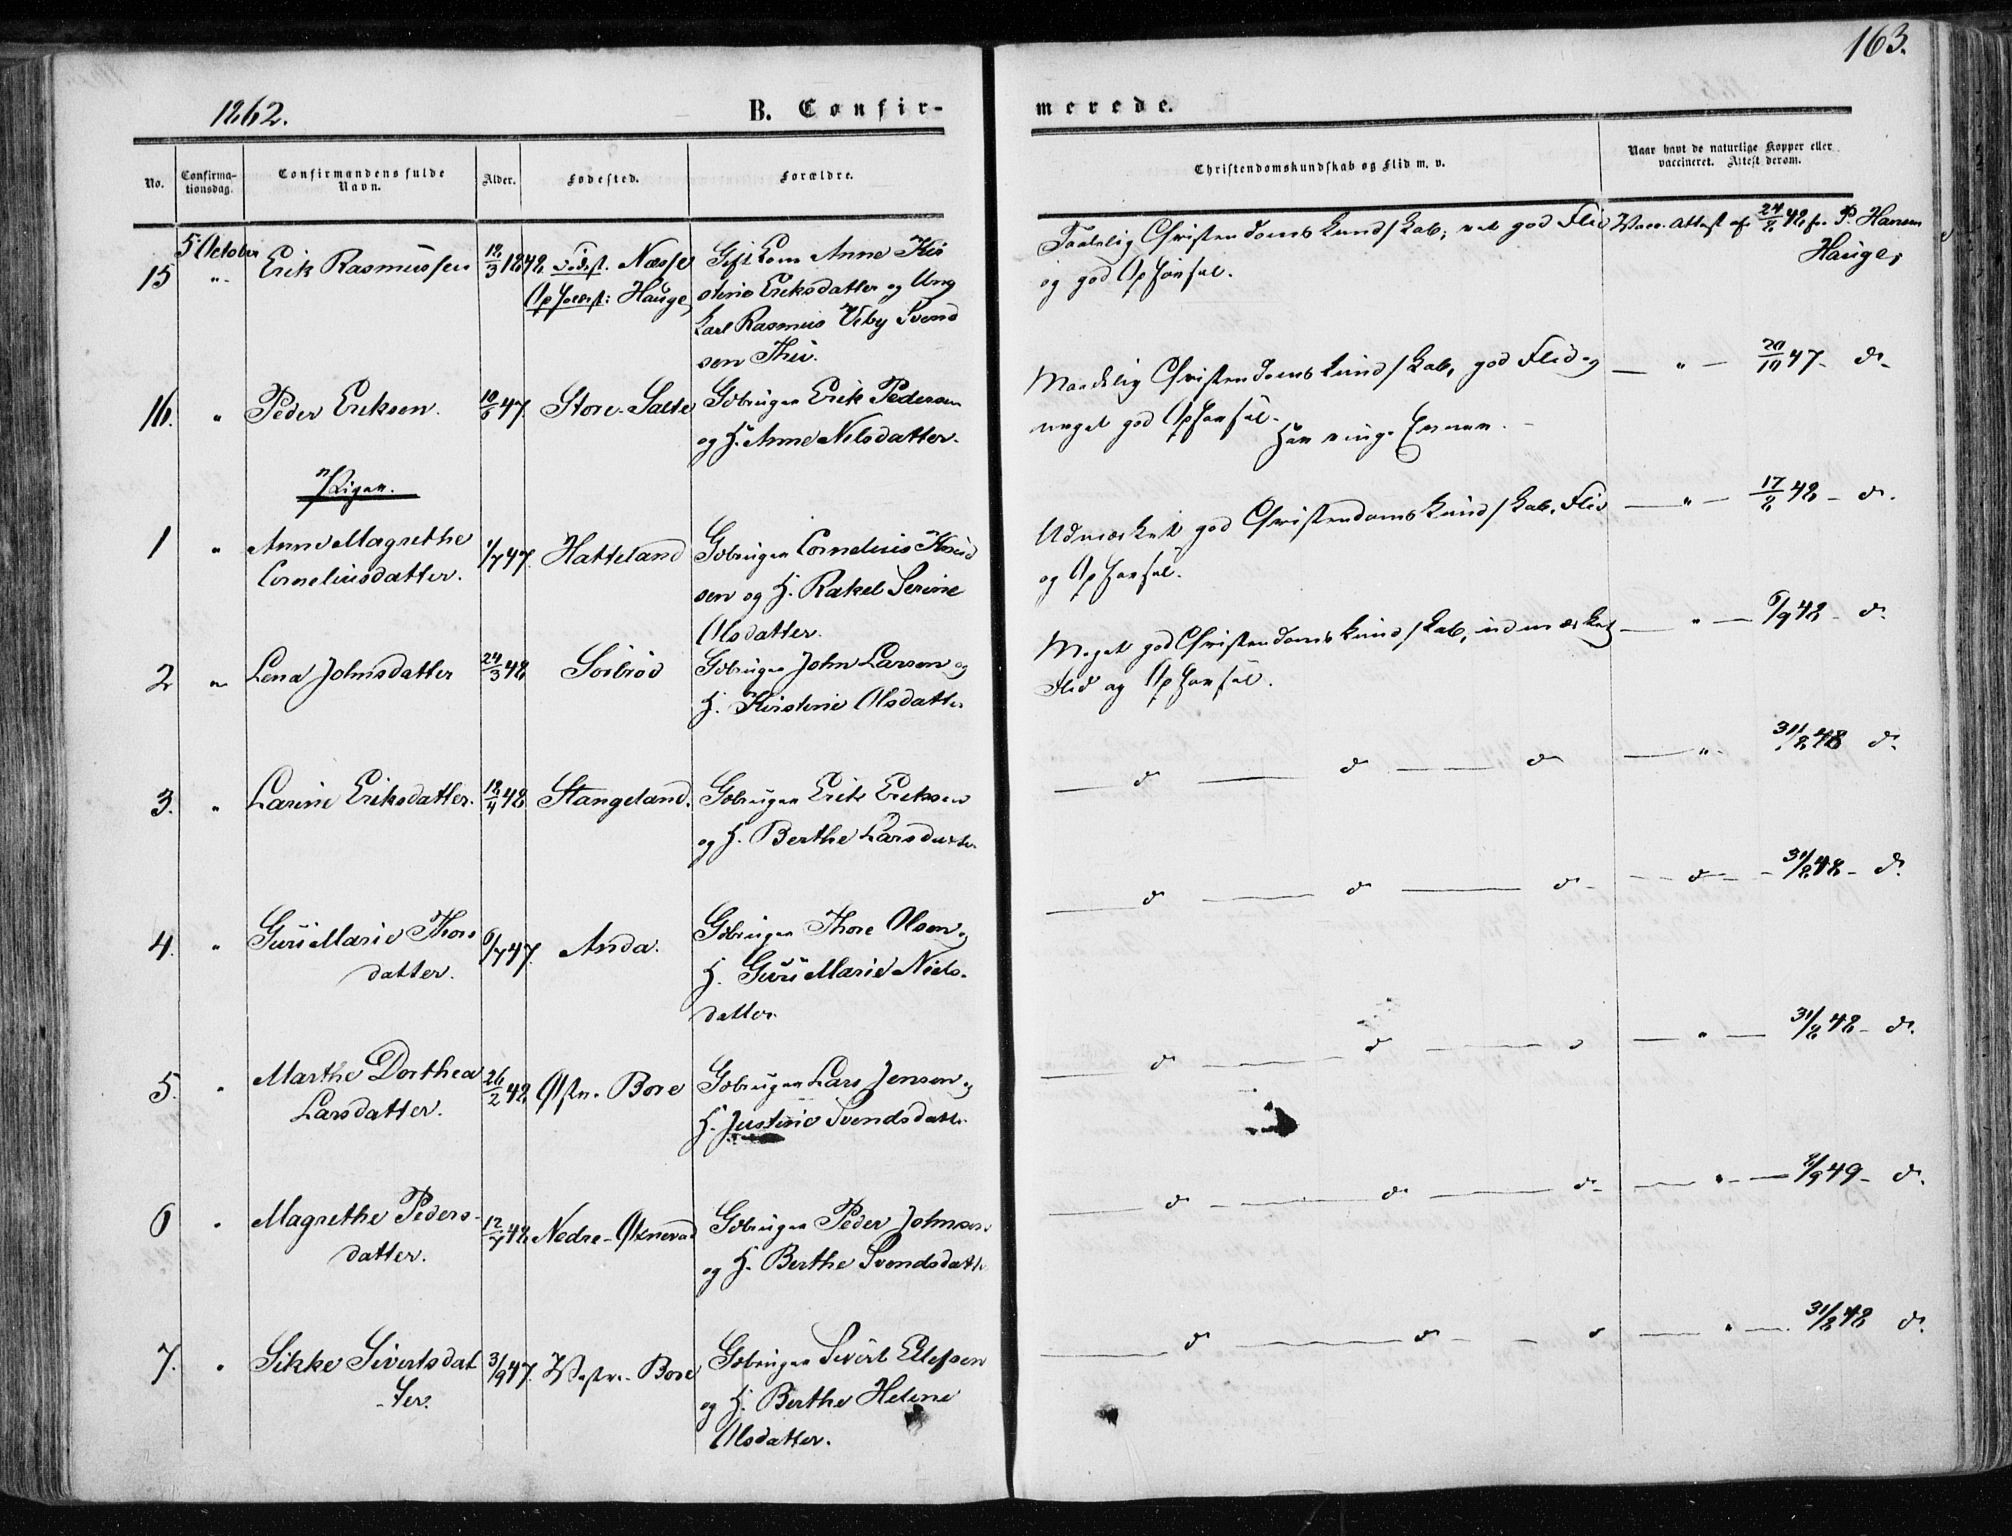 163.
1862.
B. Confir-
merede.
No.
Confirma-
tionsdag.
Confirmandens fulde
Navn.
Alder.
Fødested.
Forældre.
Christendomskundskab og Flid m. v.
Naar havt de naturlige Kopper eller
vaccineret. Attest derom.
5 October
15 " Erik Rasmussen 18/3 1848 Fødest. Næsse
Opholdsst: Hauge,
Anne Kir
stine Eriksdatter og Ung
Karl Rasmus Svend
sen Thu.
Christendomskundskab, god Flid
og god Opførsel.
Vacc. Attest af 24/8 48 fr. P. Hansen
Hauge,
16. " Peder Eriksen. 10/6 47. Store-Salte
Gbruger Erik Pedersen
og H. Anne Nilsdatter.
Maadelig Christendomskundskab, god Flid og
meget god Opførsel.
Har ringe Evner.
— " — 20/10 47 - d.
Piger.
1 " Anne Magrethe
Corneliusdatter.
1/7 47. Hatteland
Gbruger Cornelius Knud
sen og H. Rakel Serine
Olsdatter.
Udmærket god Christendomskundskab, Flid
og Opførsel.
— " — 17/8 48 - d.
2 " Lena Johnsdatter 24/3 48 Sørbrød
Gbruger John Larsen og
H. Kirstine Olsdatter
Meget god Christendomskundskab, udmærket
Flid og Opførsel.
— " — 6/9 48 - d.
3. " Larine Eriksdatter. 18/4 48. Stangeland.
Gbruger Erik Eriksen
og H. Berthe Larsdatter
— d — d — d — " - 31/8 48 d.
4. " Guri Marie Thors
datter.
6/7 47. Anda.
Gbruger Thore Olsen og
H. Guri Marie Niels-
datter
— d — d — d - — d — 31/8 48 - d.
5. " Marthe Dorthea
Larsdatter.
26/2 48 Østre Bore
Gbruger Lars Jensen og
H. Justine Svendsdatter
— d — d — d — " — 31/8 48 - d.
6 " Magrethe Peders-
datter.
12/7 48 Nedre-Øxnevad
Gbruger Peder Johnsen
og H. Berthe Svendsdatter
— d — d — d - — " — 6/9 49 - d.
7. " Sikke Sivertsdat
-ter.
3/9 47. Vestre Bore
Gbruger Sivert Ellefsen
og H. Berthe Helene
Olsdatter.
— d — d — d — " — 31/8 48 d.